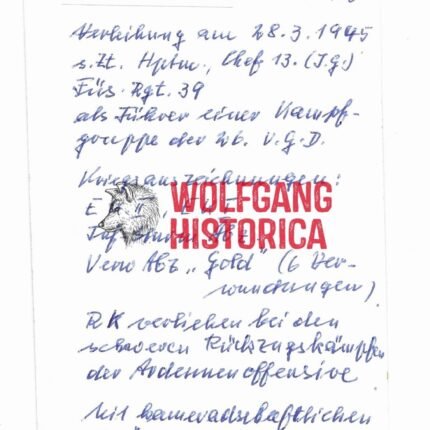 Verleihung am 28.3.1945
s.Zt. Hptm., Chef 13. (I.G.)
Füs. Rgt. 39
als Führer einer Kampf-
gruppe der 26. V.G.D.
Kriegsauszeichnungen:
WOLFGANG
HISTORICA
Verw Abz „Gold" (6 Ver-
wundungen)
RK verliehen bei den
schweren Rückzugskämpfen
der Ardennenoffensive
Mit kameradschaftlichen